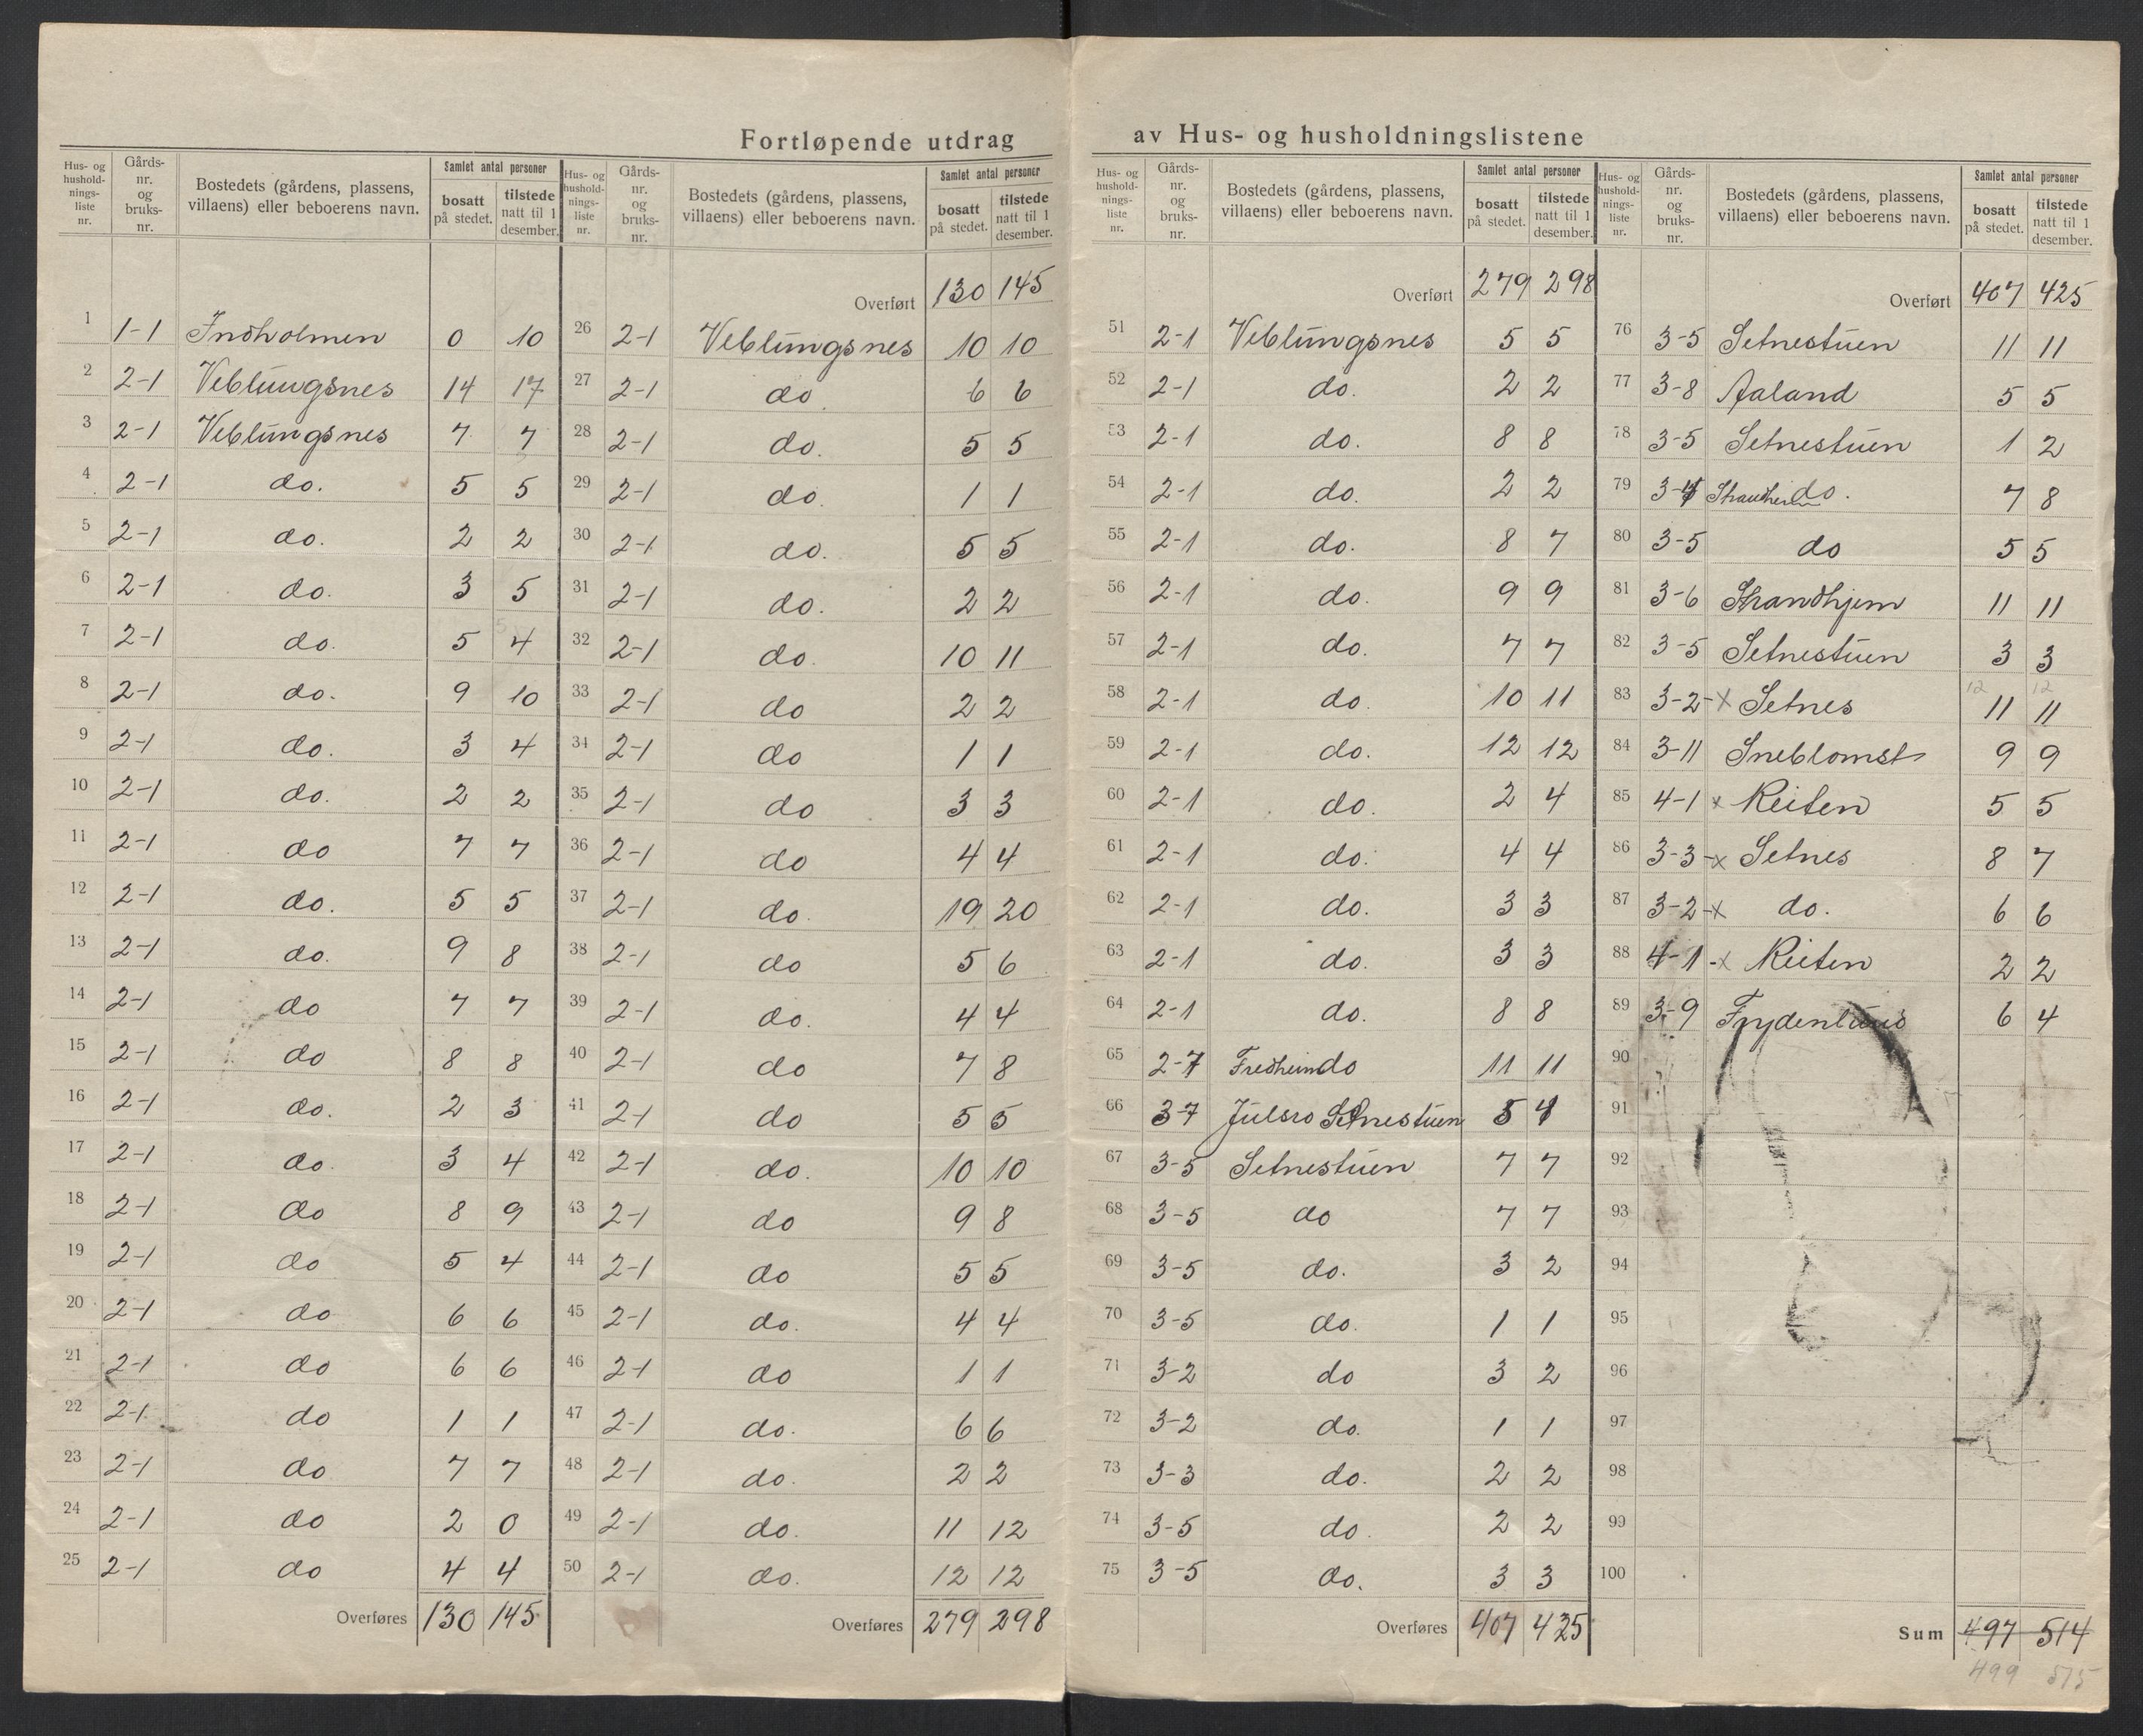 Fortløpende utdrag av Hus- og husholdningslistene
Hus- og hushold-nings-liste nr. Gårds-nr. og bruks-nr. Bostedets (gårdens, plassens, villaens) eller beboerens navn. Samlet antal personer bosatt på stedet. tilstede natt til 1 desember.
1 1-1 Indholmen 0 10
2 2-1 Veblungsnes 14 17
3 2-1 Veblungsnes 7 7
4 2-1 do. 5 5
5 2-1 do. 2 2
6 2-1 do. 3 5
7 2-1 do. 5 4 5
8 2-1 do. 9 10
9 2-1 do. 3 4
10 2-1 do. 2 2
11 2-1 do 7 7
12 2-1 do. 5 5
13 2-1 do. 9 8
14 2-1 do 7 7
15 2-1 do 8 8
16 2-1 do. 2 3
17 2-1 do. 3 4
18 2-1 do 8 9
19 2-1 do 5 4
20 2-1 do 6 6
21 2-1 do 6 6
22 2-1 do 1 1
23 2-1 do 7 7
24 2-1 do 2 0
25 2-1 do 4 4
Overføres 130 145
Hus- og hushold-nings-liste nr. Gårds-nr. og bruks-nr. Bostedets (gårdens, plassens, villaens) eller beboerens navn. Samlet antal personer bosatt på stedet. tilstede natt til 1 desember.
Overført 130 145
26 2-1 Veblungsnes 10 10
27 2-1 do 6 6
28 2-1 do. 5 5
29 2-1 do. 1 1
30 2-1 do. 5 5
31 2-1 do. 2 2
32 2-1 do. 10 11
33 2-1 do 2 2
34 2-1 do 1 1
35 2-1 do 3 3
36 2-1 do 4 4
37 2-1 do. 19 20
38 2-1 do 5 6
39 2-1 do. 4 4
40 2-1 do 7 8
41 2-1 do 5 5
42 2-1 do. 10 10
43 2-1 do 9 8
44 2-1 do 5 5
45 2-1 do. 4 4
46 2-1 do 1 1
47 2-1 do. 6 6
48 2-1 do. 2 2
49 2-1 do. 11 12
50 2-1 do. 12 12
Overføres 279 298
Hus- og hushold-nings-liste nr. Gårds-nr. og bruks-nr. Bostedets (gårdens, plassens, villaens) eller beboerens navn. Samlet antal personer bosatt på stedet. tilstede natt til 1 desember.
Overført 279 298
51 2-1 Veblungsnes 5 5
52 2-1 do. 2 2
53 2-1 do. 8 8
54 2-1 do. 2 2
55 2-1 do. 8 7
56 2-1 do. 9 9
57 2-1 do. 7 7
58 2-1 do. 10 11
59 2-1 do. 12 12
60 2-1 do. 2 4
61 2-1 do. 4 4
62 2-1 do. 3 3
63 2-1 do. 3 3
64 2-1 do. 8 8
65 2-7 Fredheim do 11 11
66 3-7 Julsro Setnestuen 5 4
67 3-5 Setnestuen 7 7
68 3-5 do 7 7
69 3-5 do. 3 2
70 3-5 do. 1 1
71 3-2 do 3 2
72 3-2 do. 1 1
73 3-3 do. 2 2
74 3-5 do. 2 2
75 3-5 do. 3 3
Overføres 407 425
Hus- og hushold-nings-liste nr. Gårds-nr. og bruks-nr. Bostedets (gårdens, plassens, villaens) eller beboerens navn. Samlet antal personer bosatt på stedet. tilstede natt til 1 desember.
Overført 407 425
76 3-5 Setnestuen 11 11
77 3-8 Aaland 5 5
78 3-5 Setnestuen 1 2
79 3-4 Strandheim do. 7 8
80 3-5 do 5 5
81 3-6 Strandhjem 11 11
82 3-5 Setnestuen 3 3
83 3-2-x Setnes 11 11 12 12
84 3-11 Sneblomst 9 9
85 4-1 x Reiten 5 5
86 3-3-x Setnes 8 7
87 3-2-x do. 6 6
88 4-1-x Reiten 2 2
89 3-9 Frydenlund 6 4
90
91
92
93
94
95
96
97
98
99
100
Sum 497 514
499 515